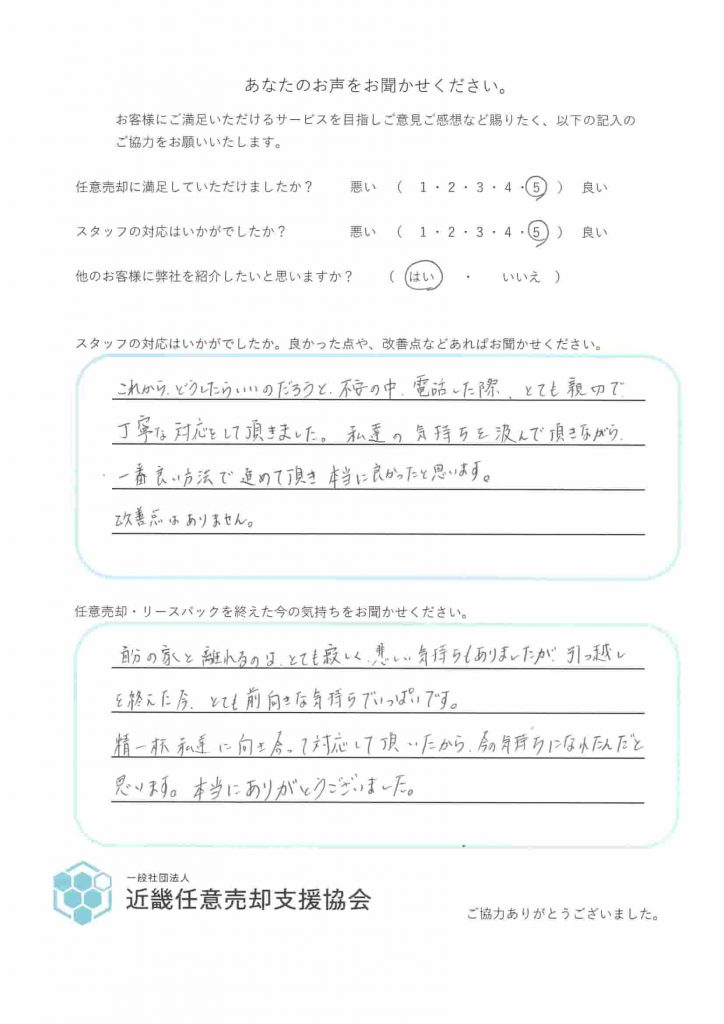 あなたのお声をお聞かせください。
お客様にご満足いただけるサービスを目指しご意見ご感想など賜りたく、以下の記入の
ご協力をお願いいたします。
任意売却に満足していただけましたか？ 悪い （ 1・2・3・4・5 ） 良い
スタッフの対応はいかがでしたか？ 悪い （ 1・2・3・4・5 ） 良い
他のお客様に弊社を紹介したいと思いますか？ （ はい ・ いいえ ）
スタッフの対応はいかがでしたか。良かった点や、改善点などあればお聞かせください。
これから、どうしたらいいのだろうと、不安の中、電話した際、とても親切で
丁寧な対応をして頂きました。私達の気持ちを汲んで頂きながら、
一番良い方法で進めて頂き本当に良かったと思います。
改善点はありません。
任意売却・リースバックを終えた今の気持ちをお聞かせください。
自分の家と離れるのは、とても寂しく、悲しい気持ちもありましたが、引っ越し
を終えた今、とても前向きな気持ちでいっぱいです。
精一杯私達に向き合って対応して頂いたから、今の気持ちになれたんだと
思います。本当にありがとうございました。
一般社団法人
近畿任意売却支援協会
ご協力ありがとうございました。